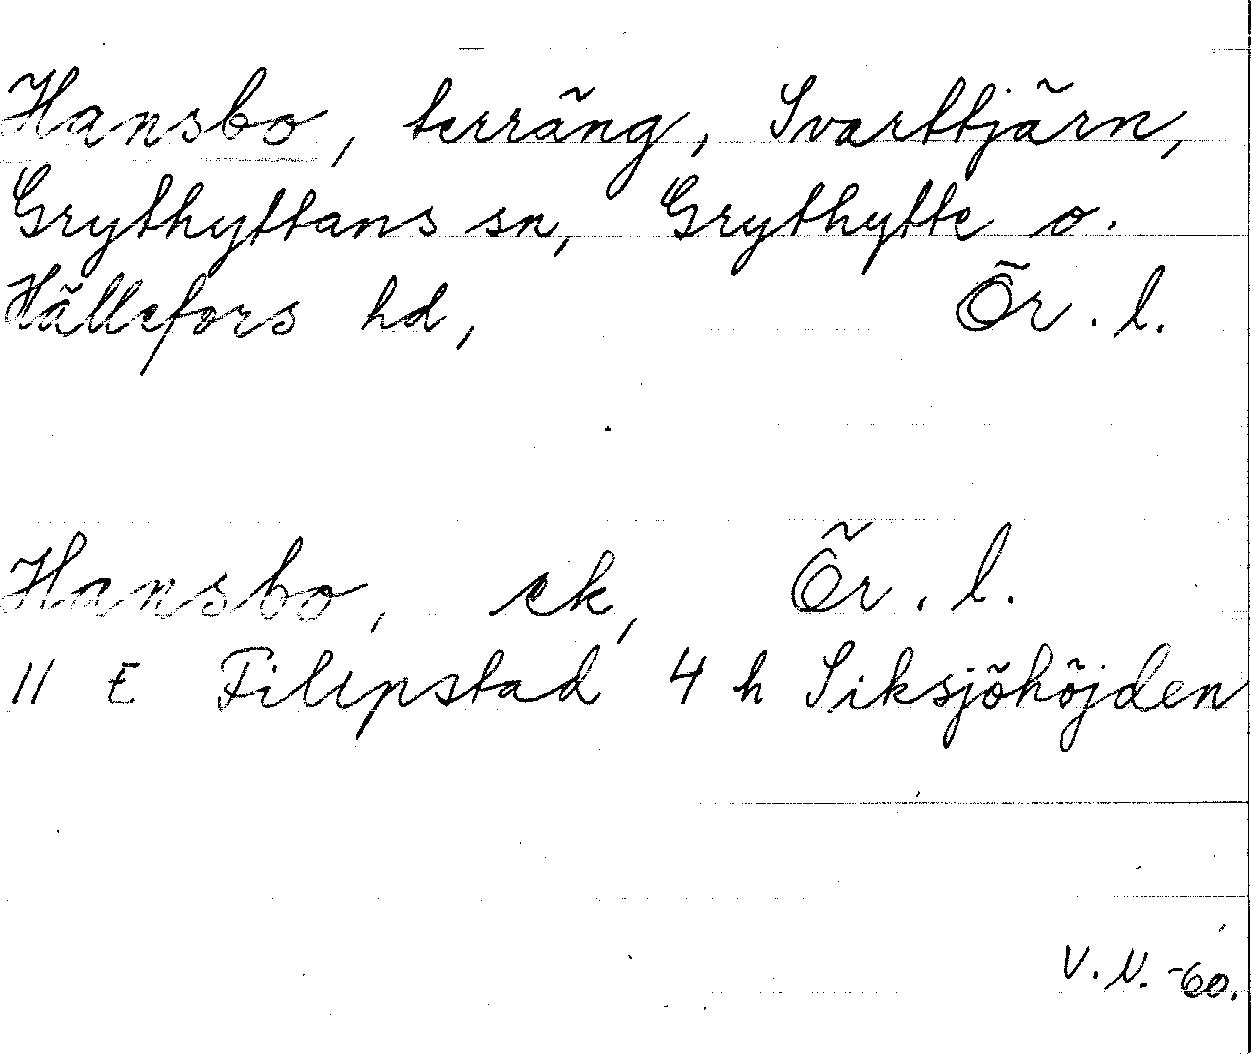 Hansbo, terräng, Svarttjärn,
Grythyttans sn, Grythytte o.
Hällefors hd, Ör. l.
Hansbo, ek, Ör. l.
11 E Filipstad 4 h Siksjöhöjden
V. N. -60.